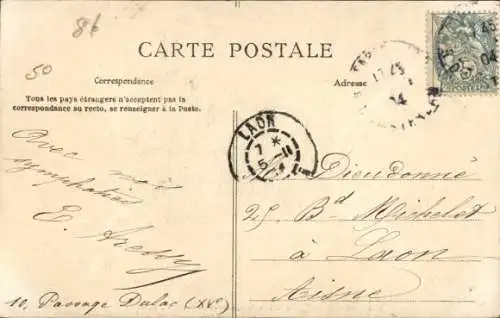 86
50
CARTE POSTALE
Correspondance
Adresse
Tous les pays étrangers n'acceptent pas la
correspondance au recto, se renseigner à la Poste.
Avec mes
sympathies
E.
10, Passage Dulac (XVe)
LAON
7 *
5 - 11
Dieudonné
25 Bd Michelet
à Laon
Aisne
17
04